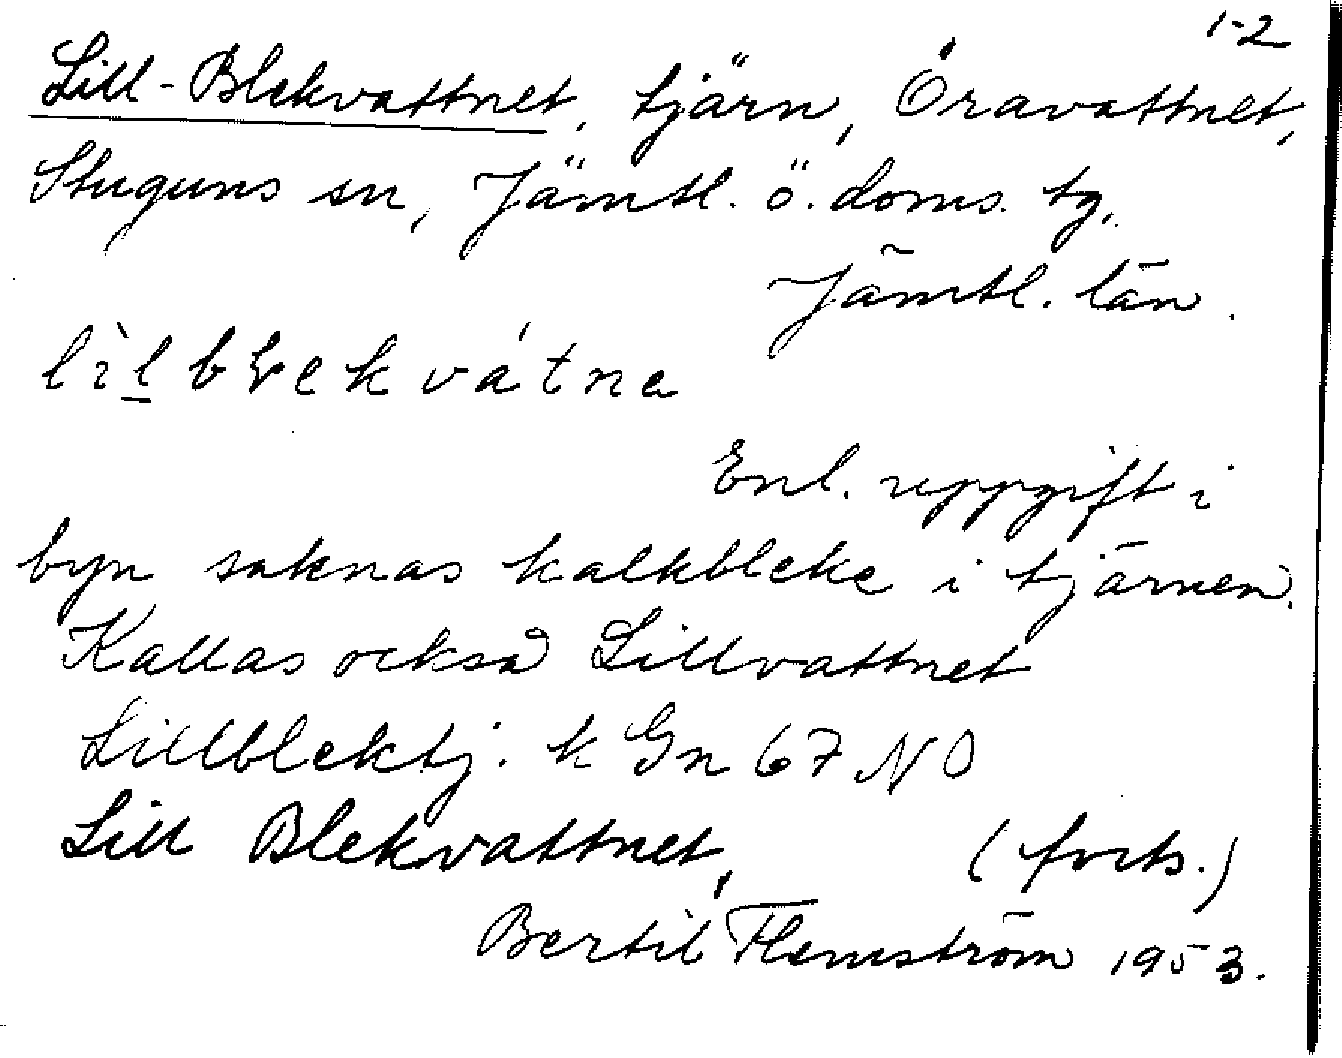 1-2
Lill-Blekvattnet, tjärn, Öravattnet,
Stuguns sn, Jämtl. ö. doms. tg.
Jämtl. län.
lìl blekvátne
Enl. uppgift i
byn saknas kalkbleke i tjärnen.
Kallas också Lillvattnet
Lillblektj. k Gn 67 NO
Lill Blekvattnet, (forts.)
Bertil Flemström 1953.